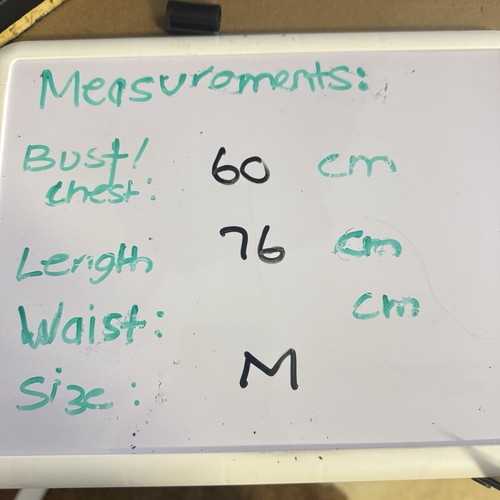 Measurements:
Bust/ 60 cm
chest:
Length 76 cm
Waist: cm
Size: M